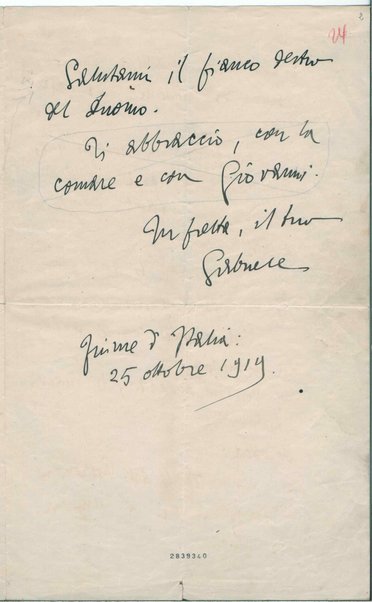 24
2
Salutami il fianco destro
del Duomo.
Ti abbraccio, con la
comare e con Giovanni.
In fretta, il tuo
Gabriele
Fiume d'Italia:
25 ottobre 1919.
2839340